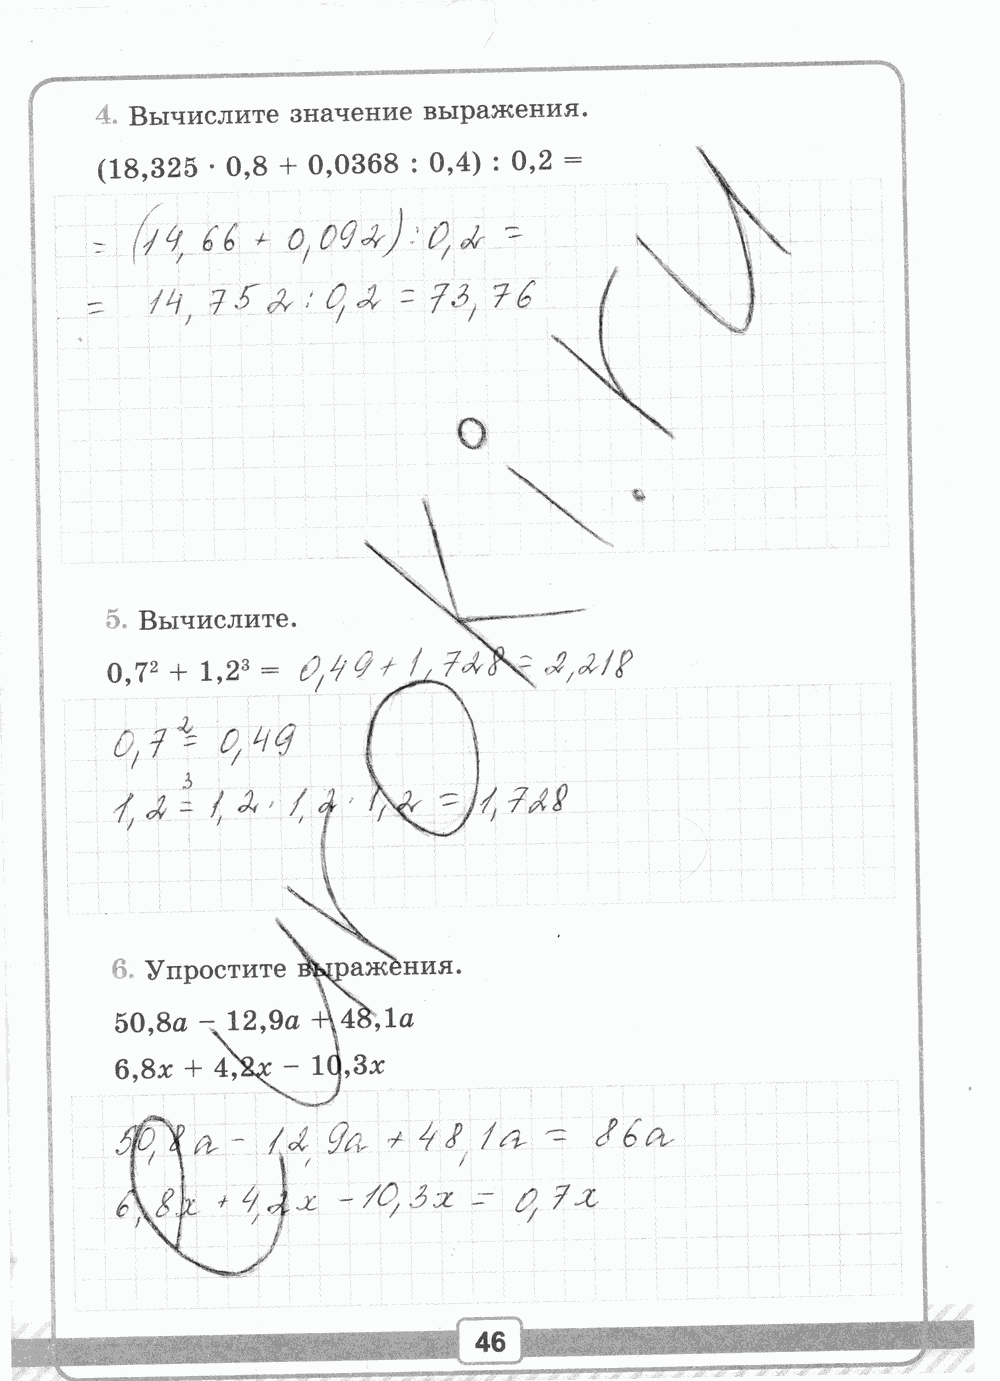 4. Вычислите значение выражения.
(18,325 · 0,8 + 0,0368 : 0,4) : 0,2 =
= (14,66 + 0,092) : 0,2 =
= 14,752 : 0,2 = 73,76
5. Вычислите.
0,7² + 1,2³ = 0,49 + 1,728 = 2,218
0,7² = 0,49
1,2³ = 1,2 · 1,2 · 1,2 = 1,728
6. Упростите выражения.
50,8a − 12,9a + 48,1a
6,8x + 4,2x − 10,3x
50,8a − 12,9a + 48,1a = 86a
6,8x + 4,2x − 10,3x = 0,7x
46